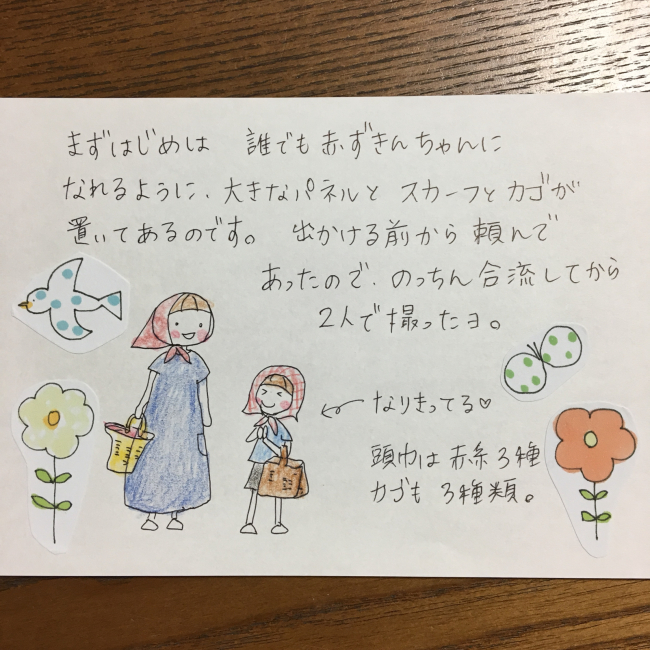 まずはじめは 誰でも赤ずきんちゃんに
なれるように、大きなパネルと スカーフと カゴが
置いてあるのです。 出かける前から 頼んで
あったので、のっちん合流してから
2人で撮ったヨ。
← なりきってる♡
頭巾は赤系3種
カゴも 3種類。